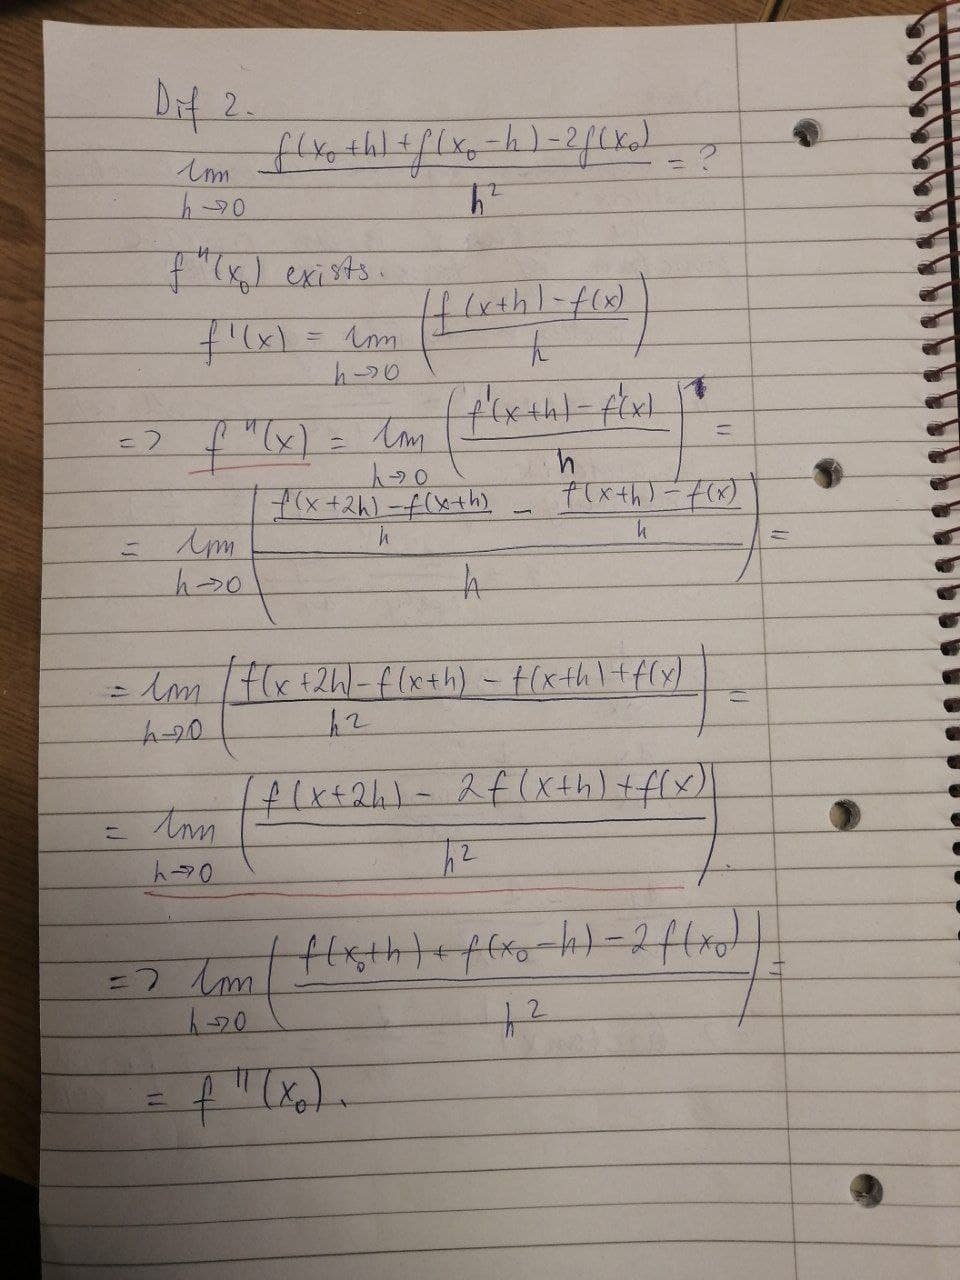 Dif 2.
lim h→0 (f(x₀+h)+f(x₀-h)-2f(x₀))/h² = ?
f''(x₀) exists.
f'(x) = lim h→0 ((f(x+h)-f(x))/h)
=> f''(x) = lim h→0 ((f'(x+h)-f'(x))/h) =
= lim h→0 (((f(x+2h)-f(x+h))/h - (f(x+h)-f(x))/h)/h) =
= lim h→0 ((f(x+2h)-f(x+h)-f(x+h)+f(x))/h²) =
= lim h→0 ((f(x+2h)-2f(x+h)+f(x))/h²).
=> lim h→0 ((f(x₀+h)+f(x₀-h)-2f(x₀))/h²) =
= f''(x₀).